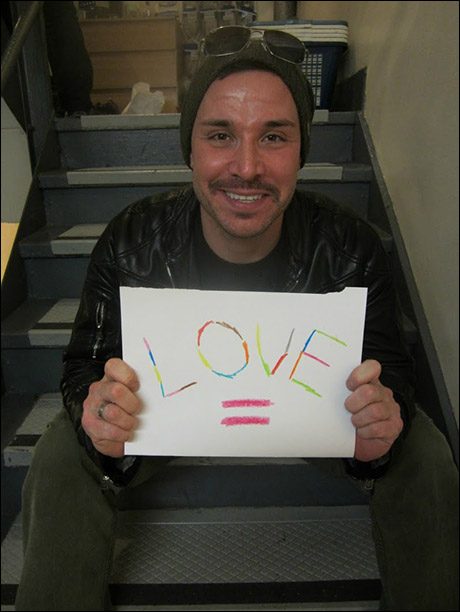 LOVE
=